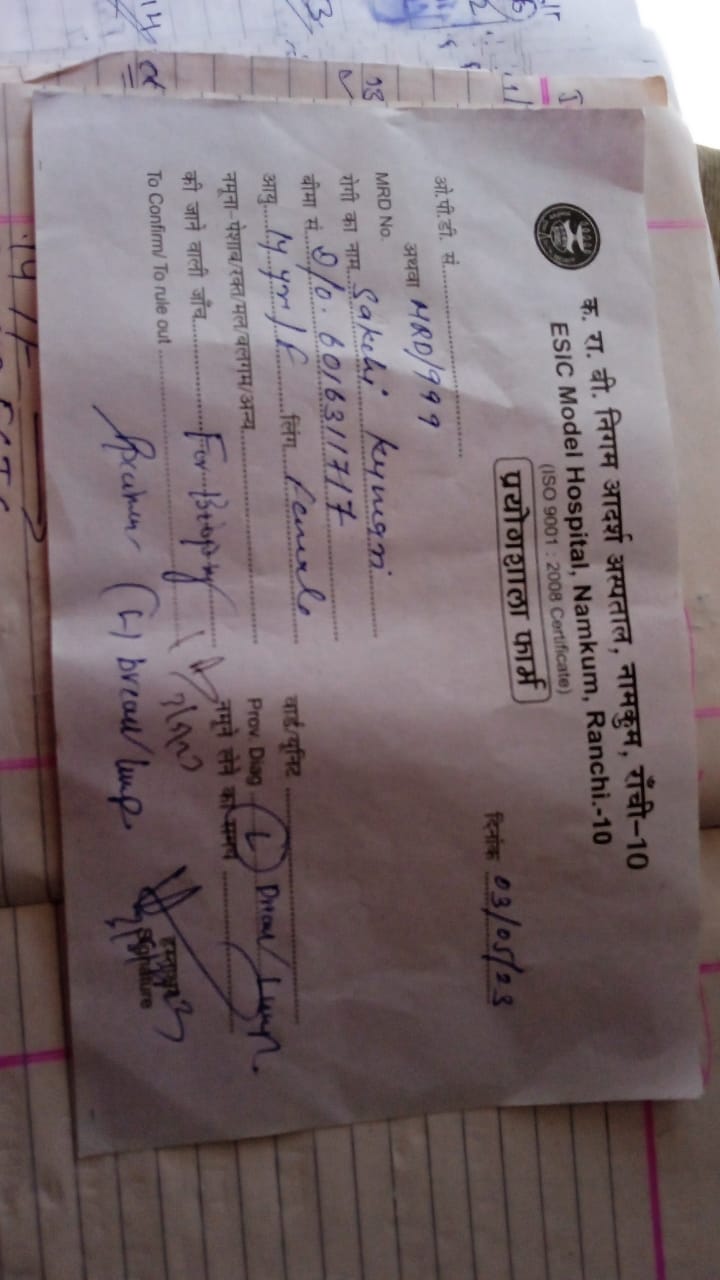 क. रा. बी. निगम आदर्श अस्पताल, नामकुम, राँची–10
ESIC Model Hospital, Namkum, Ranchi.-10
(ISO 9001 : 2008 Certificate)
प्रयोगशाला फार्म
दिनांक 03/05/23
ओ.पी.डी. सं.
अथवा MRD/999
MRD No.
रोगी का नाम Sakshi Kumari
बीमा सं. D/O. 6016311717
वार्ड/यूनिट
आयु 14 yr/F लिंग Female
Prov. Diag (L) Breast Lump
नमूना-पेशाब/रक्त/मल/बलगम/अन्य
नमूने लेने का समय
की जाने वाली जाँच For Biopsy
To Confirm/ To rule out
Specimen (L) breast lump
हस्ताक्षर
Signature